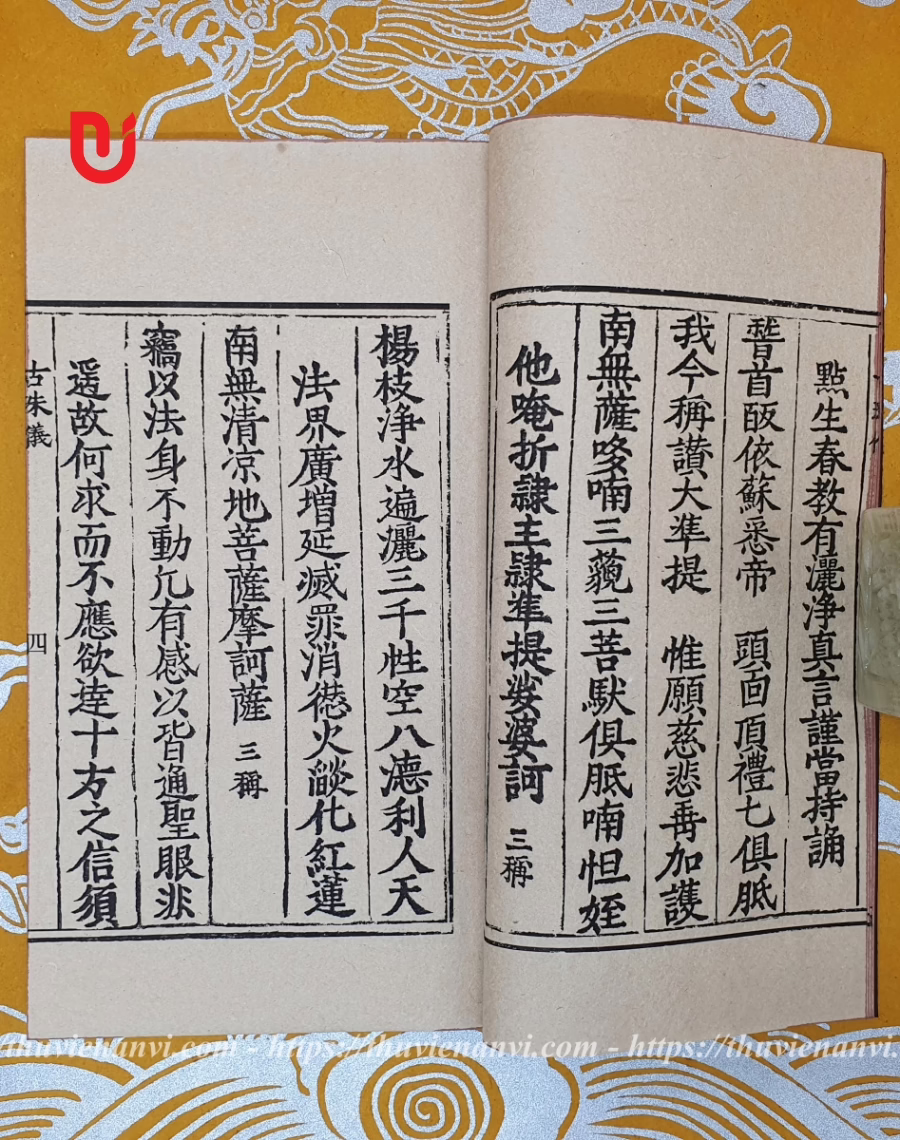 點生春教有灑淨真言謹當持誦
稽首皈依蘇悉帝 頭面頂禮七俱胝
我今稱讃大準提 惟願慈悲垂加護
南無薩哆喃三藐三菩馱俱胝喃怛姪
他唵折隷主隷準提娑婆訶 三稱
楊枝淨水遍灑三千性空八德利人天
法界廣增延滅罪消愆火燄化紅蓮
南無清凉地菩薩摩訶薩 三稱
竊以法身不動凢有感以皆通聖眼非
遥故何求而不應欲達十方之信須
古朱儀
四
https://thuvienanvi.com - https://thuvienanvi.com - https://thuvienanvi.